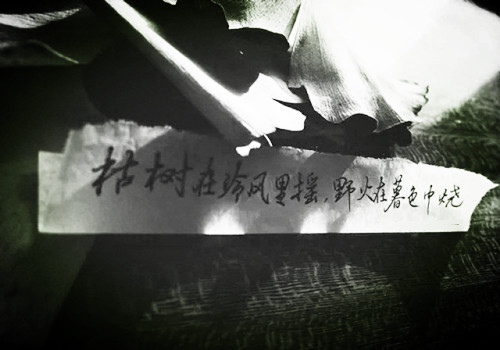 枯树在冷风里摇，野火在暮色中烧